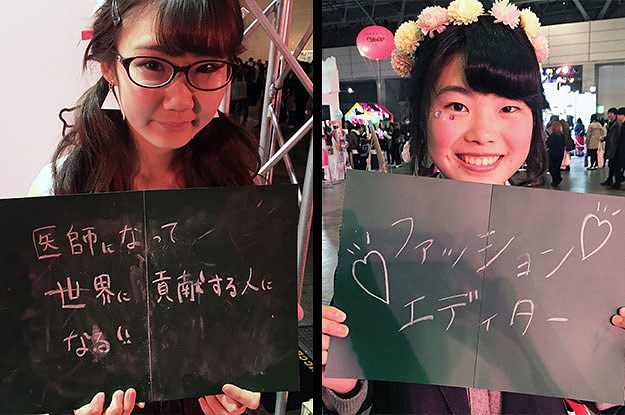 医師になって
世界に貢献する人に
なる!!
ファッション
エディター